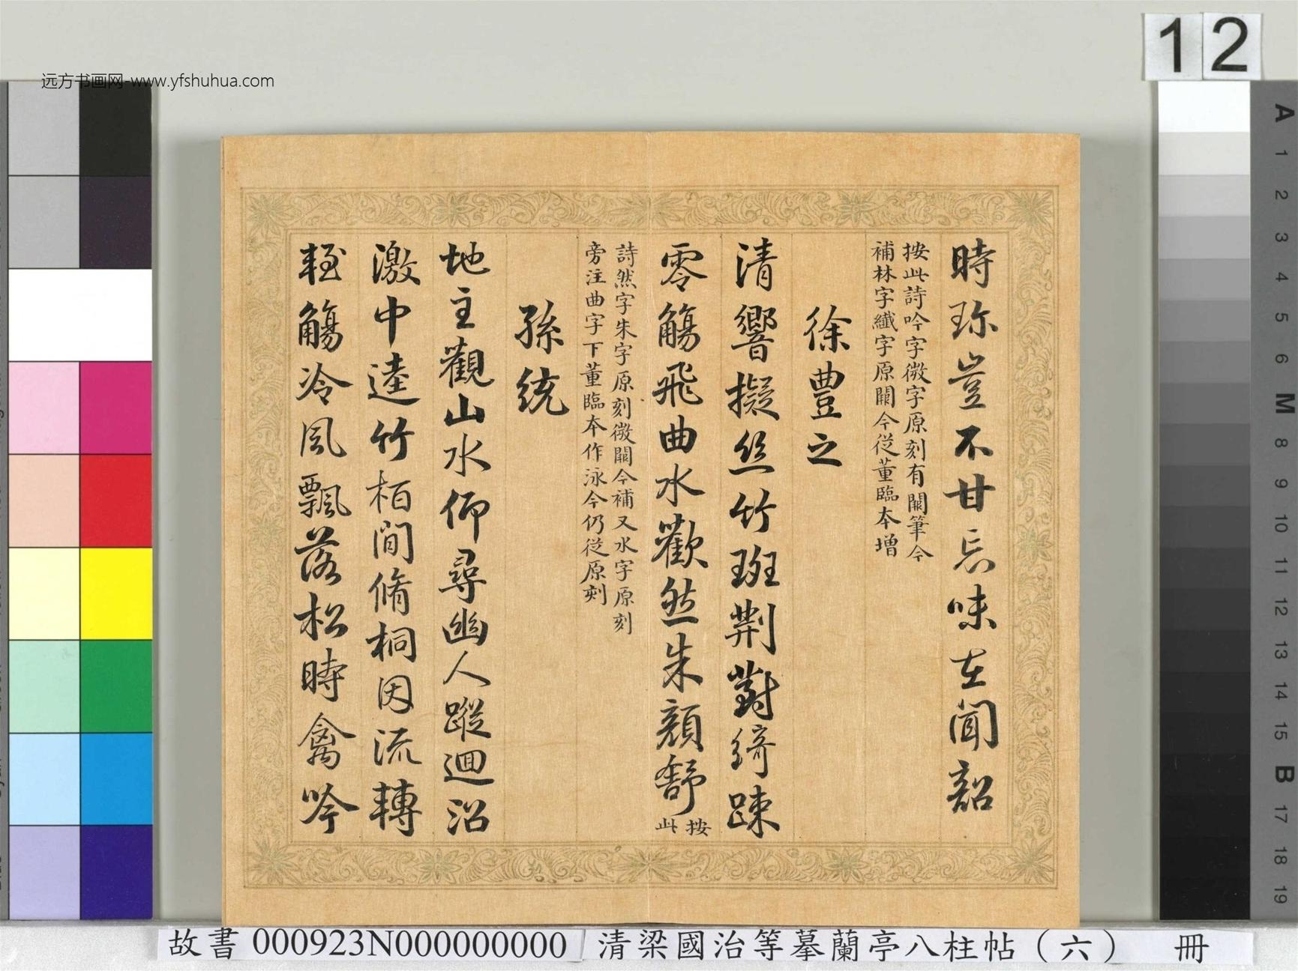 時珎豈不甘忘味在聞韶
按此詩吟字微字原刻有闕筆今
補林字纖字原闕今從董臨本增
徐豊之
清響擬絲竹班荆對綺疎
零觴飛曲水歡然朱顔舒按此
詩然字朱字原刻微闕今補又水字原刻
旁注曲字下董臨本作泳今仍從原刻
孫統
地主觀山水仰尋幽人蹤迴沼
激中逵竹栢間脩桐因流轉
輕觴冷風飄落松時禽吟
远方书画网-www.yfshuhua.com
12
A
1
2
3
4
5
6
M
8
9
10
11
12
13
14
15
B
17
18
19
故書 000923N000000000 清梁國治等摹蘭亭八柱帖（六） 冊